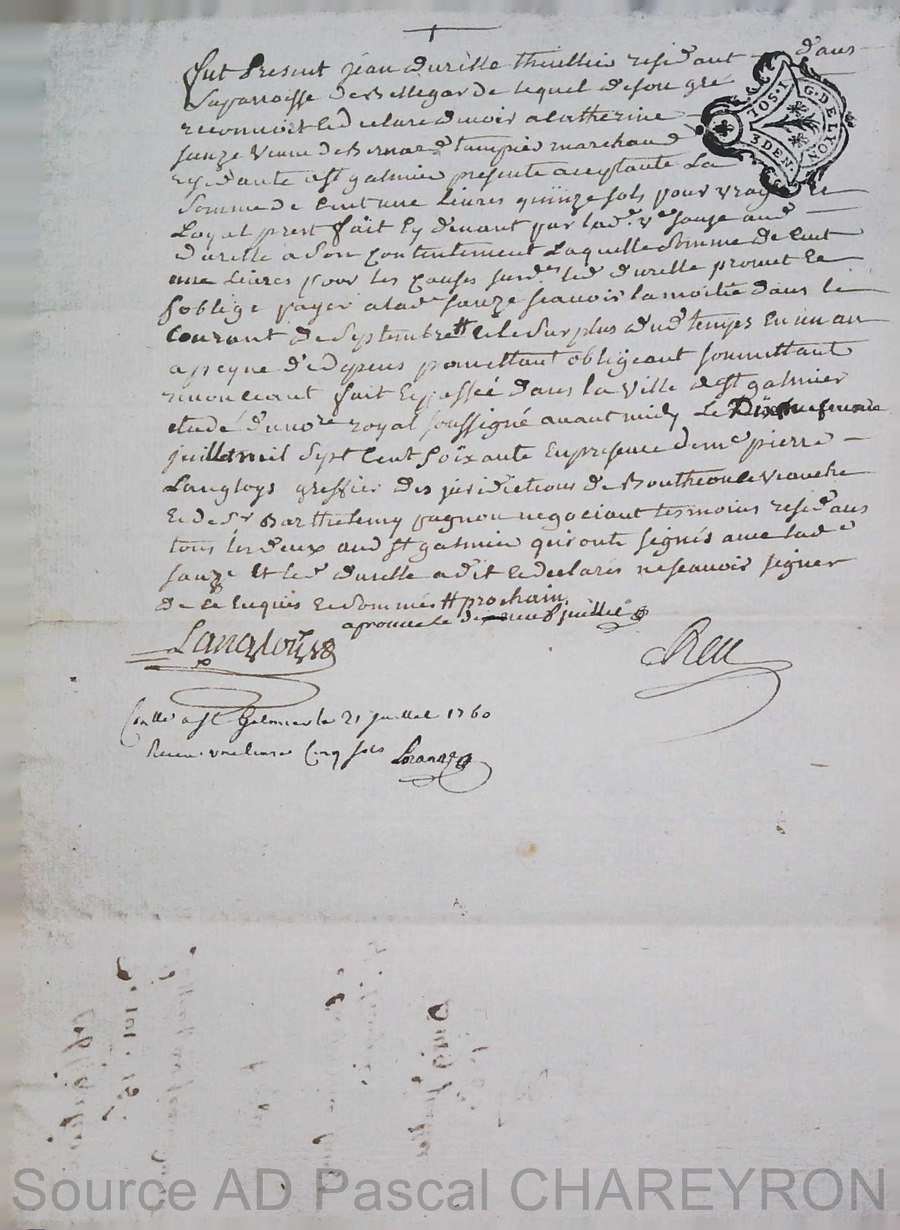 fut Present jean durelle thuillier residant dans
La parroisse de Bellegarde lequel de son gre
reconnoit et declare devoir a Catherine
sauze veuve de Bernard tampier marchande
residante a St galmier presente acceptante La
Somme de Cent une Livres quinze sols pour vray et
Loyal prest fait cy devant par lade ve sauze aud
durelle a son Contentement Laquelle Somme de Cent
une Livres pour les Causes susd led durelle promet et
s'oblige payer a lade sauze scavoir la moitié dans le
Courant de Septembre # et le Surplus dud temps En un an
a peyne de depens promettant obligeant soumettant
renonceant fait et passée dans la ville de St galmier
etude du nore royal soussigné avant midy Le Dix neufvieme
juillet mil Sept Cent soixante En presence de me pierre
Langloys greffier des jurisdictions de Boutheon et Veauche
et de Sr Barthelemy pagnon negociant temoins residans
tous les deux aud St galmier qui ont signés avec lade
sauze et led durelle a dit et declaré ne scavoir signer
de ce Enquis et Sommés # prochain
aprouve le dix neuf juillet
Langloys
TOS.1
3 DEN.
G. DE LYON
Conllé a St Galmier le 21 juillet 1760
Recu Cinq sols
Source AD Pascal CHAREYRON